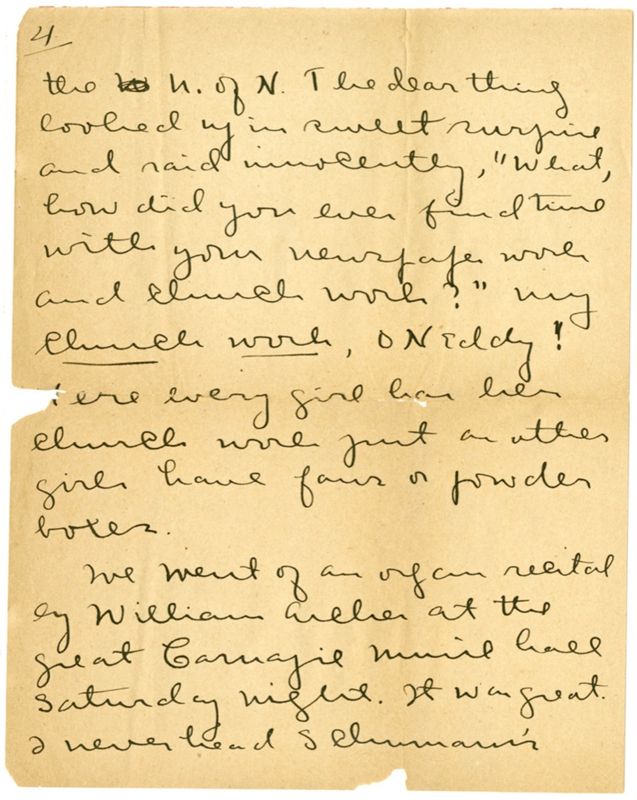 4
the N. of N. The dear thing
looked up in sweet surprise
and said innocently, "What,
how did you ever find time
with your newspaper work
and church work?" My
church work, O Neddy!
ere every girl has her
church work just as other
girls have fans or powder
boxes.
We went of an organ recital
by William Archer at the
great Carnagie music hall
Saturday night. It was great.
I never head Schumann's